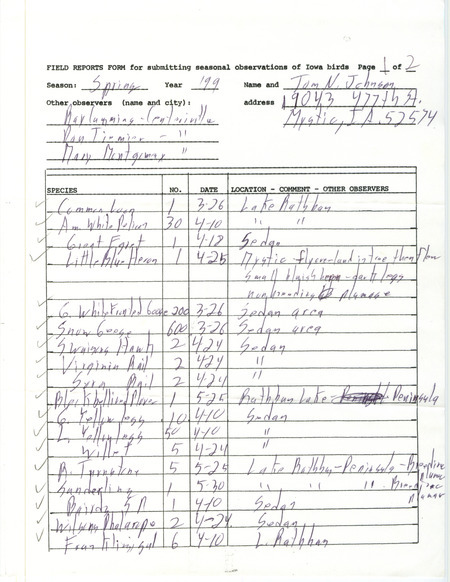 FIELD REPORTS FORM for submitting seasonal observations of Iowa birds Page 1 of 2
Season: Spring Year '99 Name and Tom N. Johnson
Other observers (name and city): address 19043 477th St.
Ray Cummins - Centerville Mystic, IA. 52574
- "
Mary Montgomery "
SPECIES NO. DATE LOCATION - COMMENT - OTHER OBSERVERS
Common Loon 1 3-26 Lake Rathbun
Am. White Pelican 30 4-10 " "
Great Egret 1 4-18 Sedan
Little Blue Heron 1 4-25 Mystic - flyover
Small - dark legs
nonbreeding plumage
G. White fronted Geese 200 3-26 Sedan area
Snow Geese 600 3-26 Sedan area
Swainsons Hawk 2 4-24 Sedan
Virginia Rail 2 4-24 "
Sora Rail 2 4-24 "
Black bellied Plover 1 5-25 Rathbun Lake - Peninsula
G. Yellowlegs 10 4-10 Sedan
L. Yellowlegs 50 4-10 "
Willet 5 4-24 "
R. Turnstone 5 5-25 Lake Rathbun - Peninsula - Breeding plumage
Sanderling 1 5-30 " " " Breeding plumage
Bairds SP 1 4-10 Sedan
Wilsons Phalarope 2 4-24 Sedan
Franklins gull 6 4-10 L. Rathbun